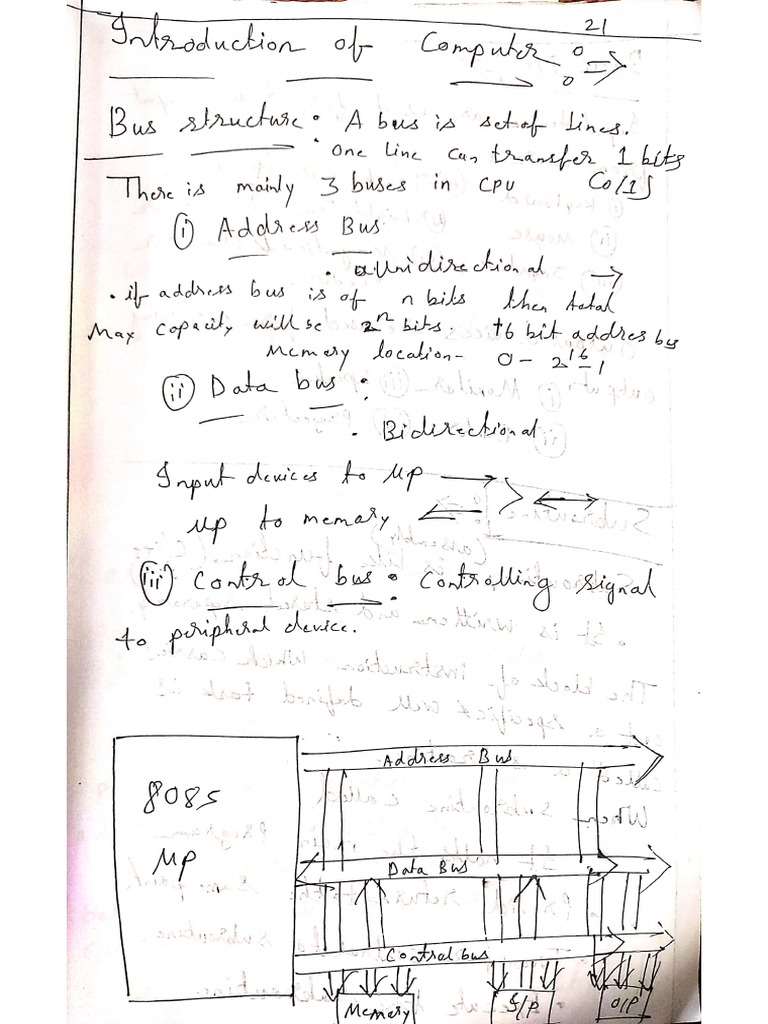 21
Introduction of Computer :⇒
Bus structure : A bus is set of lines.
· One line can transfer 1 bits
There is mainly 3 buses in CPU Co/1S
(i) Address Bus
· Unidirectional →
· if address bus is of n bits then total
Max capacity will be 2^n bits. 16 bit addres bus
Memory location - 0 - 2^16-1
(ii) Data bus :
· Bidirectional
Input devices to MP →
MP to memory ← > ↔
(iii) Control bus : Controlling signal
to peripheral device.
Address Bus
8085
MP
Data Bus
Control bus
Memory
I/P
O/P